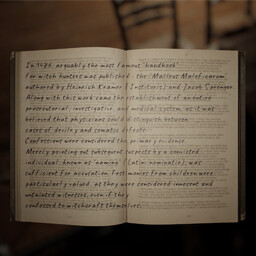 In 1486, arguably the most famous "handbook"
for witch hunters was published - the (Malleus Maleficarum)
authored by Heinrich Kramer (Institoris) and Jacob Sprenger.
Along with this work came the establishment of an entire
prosecutorial, investigative, and medical system, as it was
believed that physicians could distinguish between
cases of devilry and somatic defects.
Confessions were considered the primary evidence.
Merely pointing out subsequent suspects by a convicted
individual, known as "naming" (Latin: nominatio), was
sufficient for accusation. Testimonies from children were
particularly valued, as they were considered innocent and
untainted witnesses, even if they
confessed to witchcraft themselves.